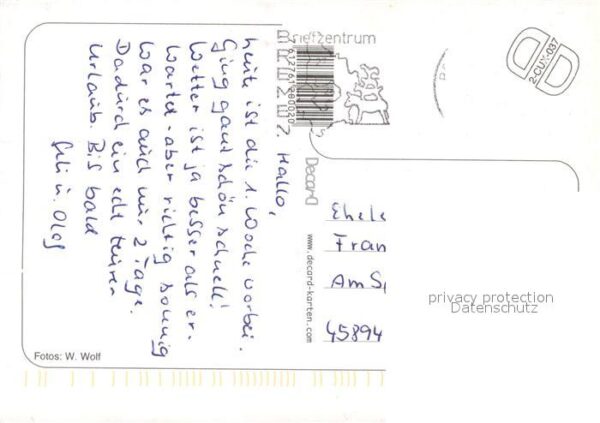 Hallo,
heute ist die 1. Woche vorbei.
Ging ganz schön schnell!
Wetter ist ja besser als er-
wartet - aber richtig sonnig
war es auch nur 2 Tage.
Dadurch ein echt teurer
Urlaub. Bis bald
u. Olaf
Briefzentrum
612761280020
Decard
www.decard-karten.com
2-CUX-037
Ehele
Fran
Am Sp
45894
privacy protection
Datenschutz
Fotos: W. Wolf